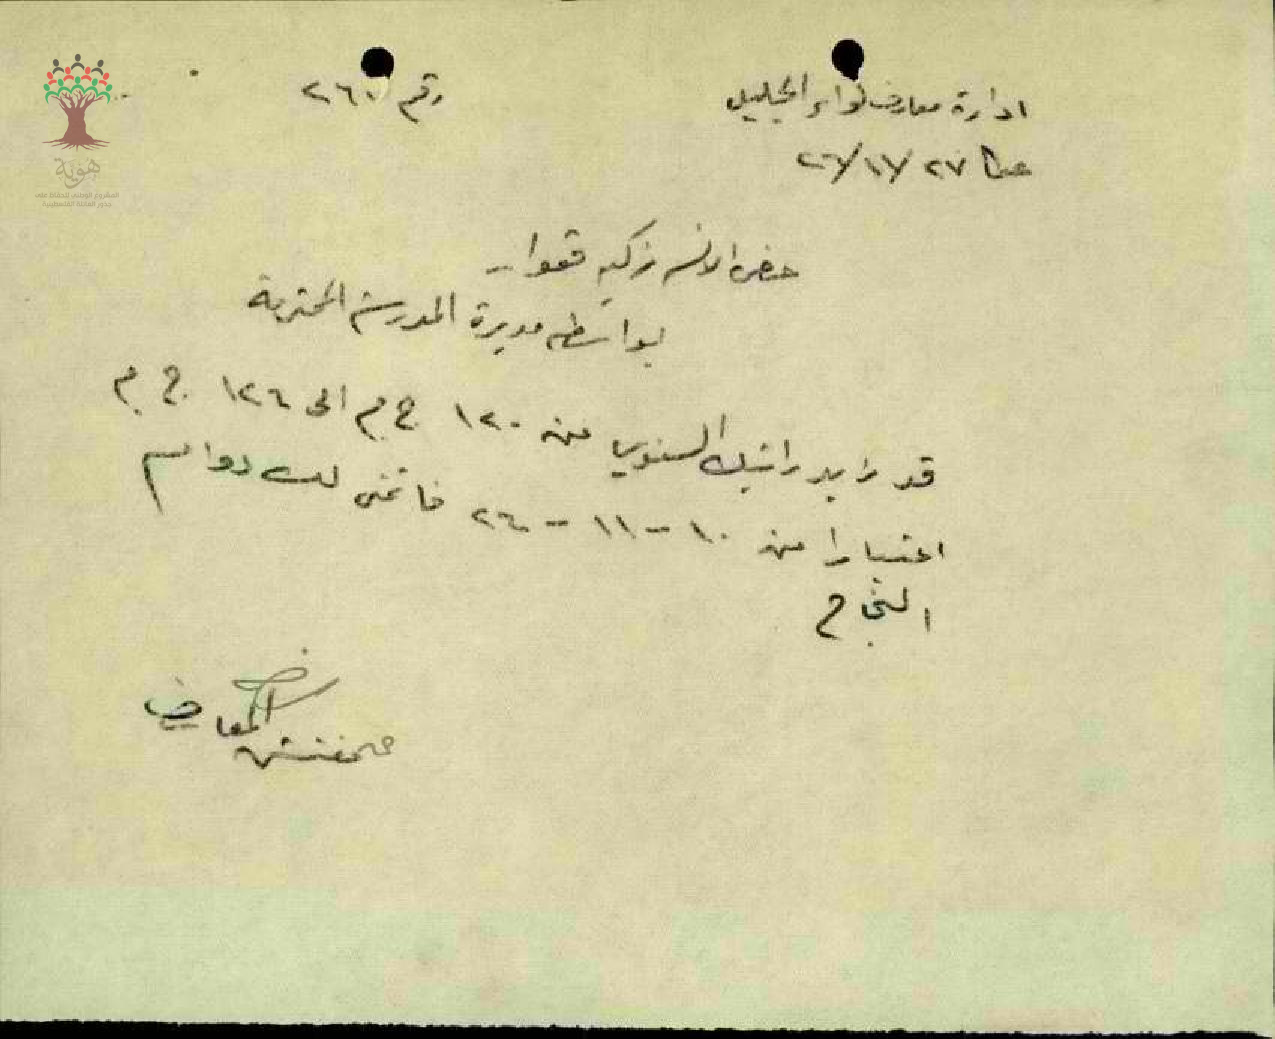 ادارة معارف لواء الجليل
رقم ٢٦٠
عكا ٢٧/١١/٢٦
حضرة الانسه زكيه قعوار
بواسطه مديرة المدرسة المحترمة
قد زايد راتبك السنوي من ١٢٠ ج م الى ١٢٦ ج م
اعتبارا من ١٠-١١-٢٦ فاتمنى لك دوام
النجاح
مفتش المعارف
هوية
المشروع الوطني للحفاظ على
جذور العائلة الفلسطينية